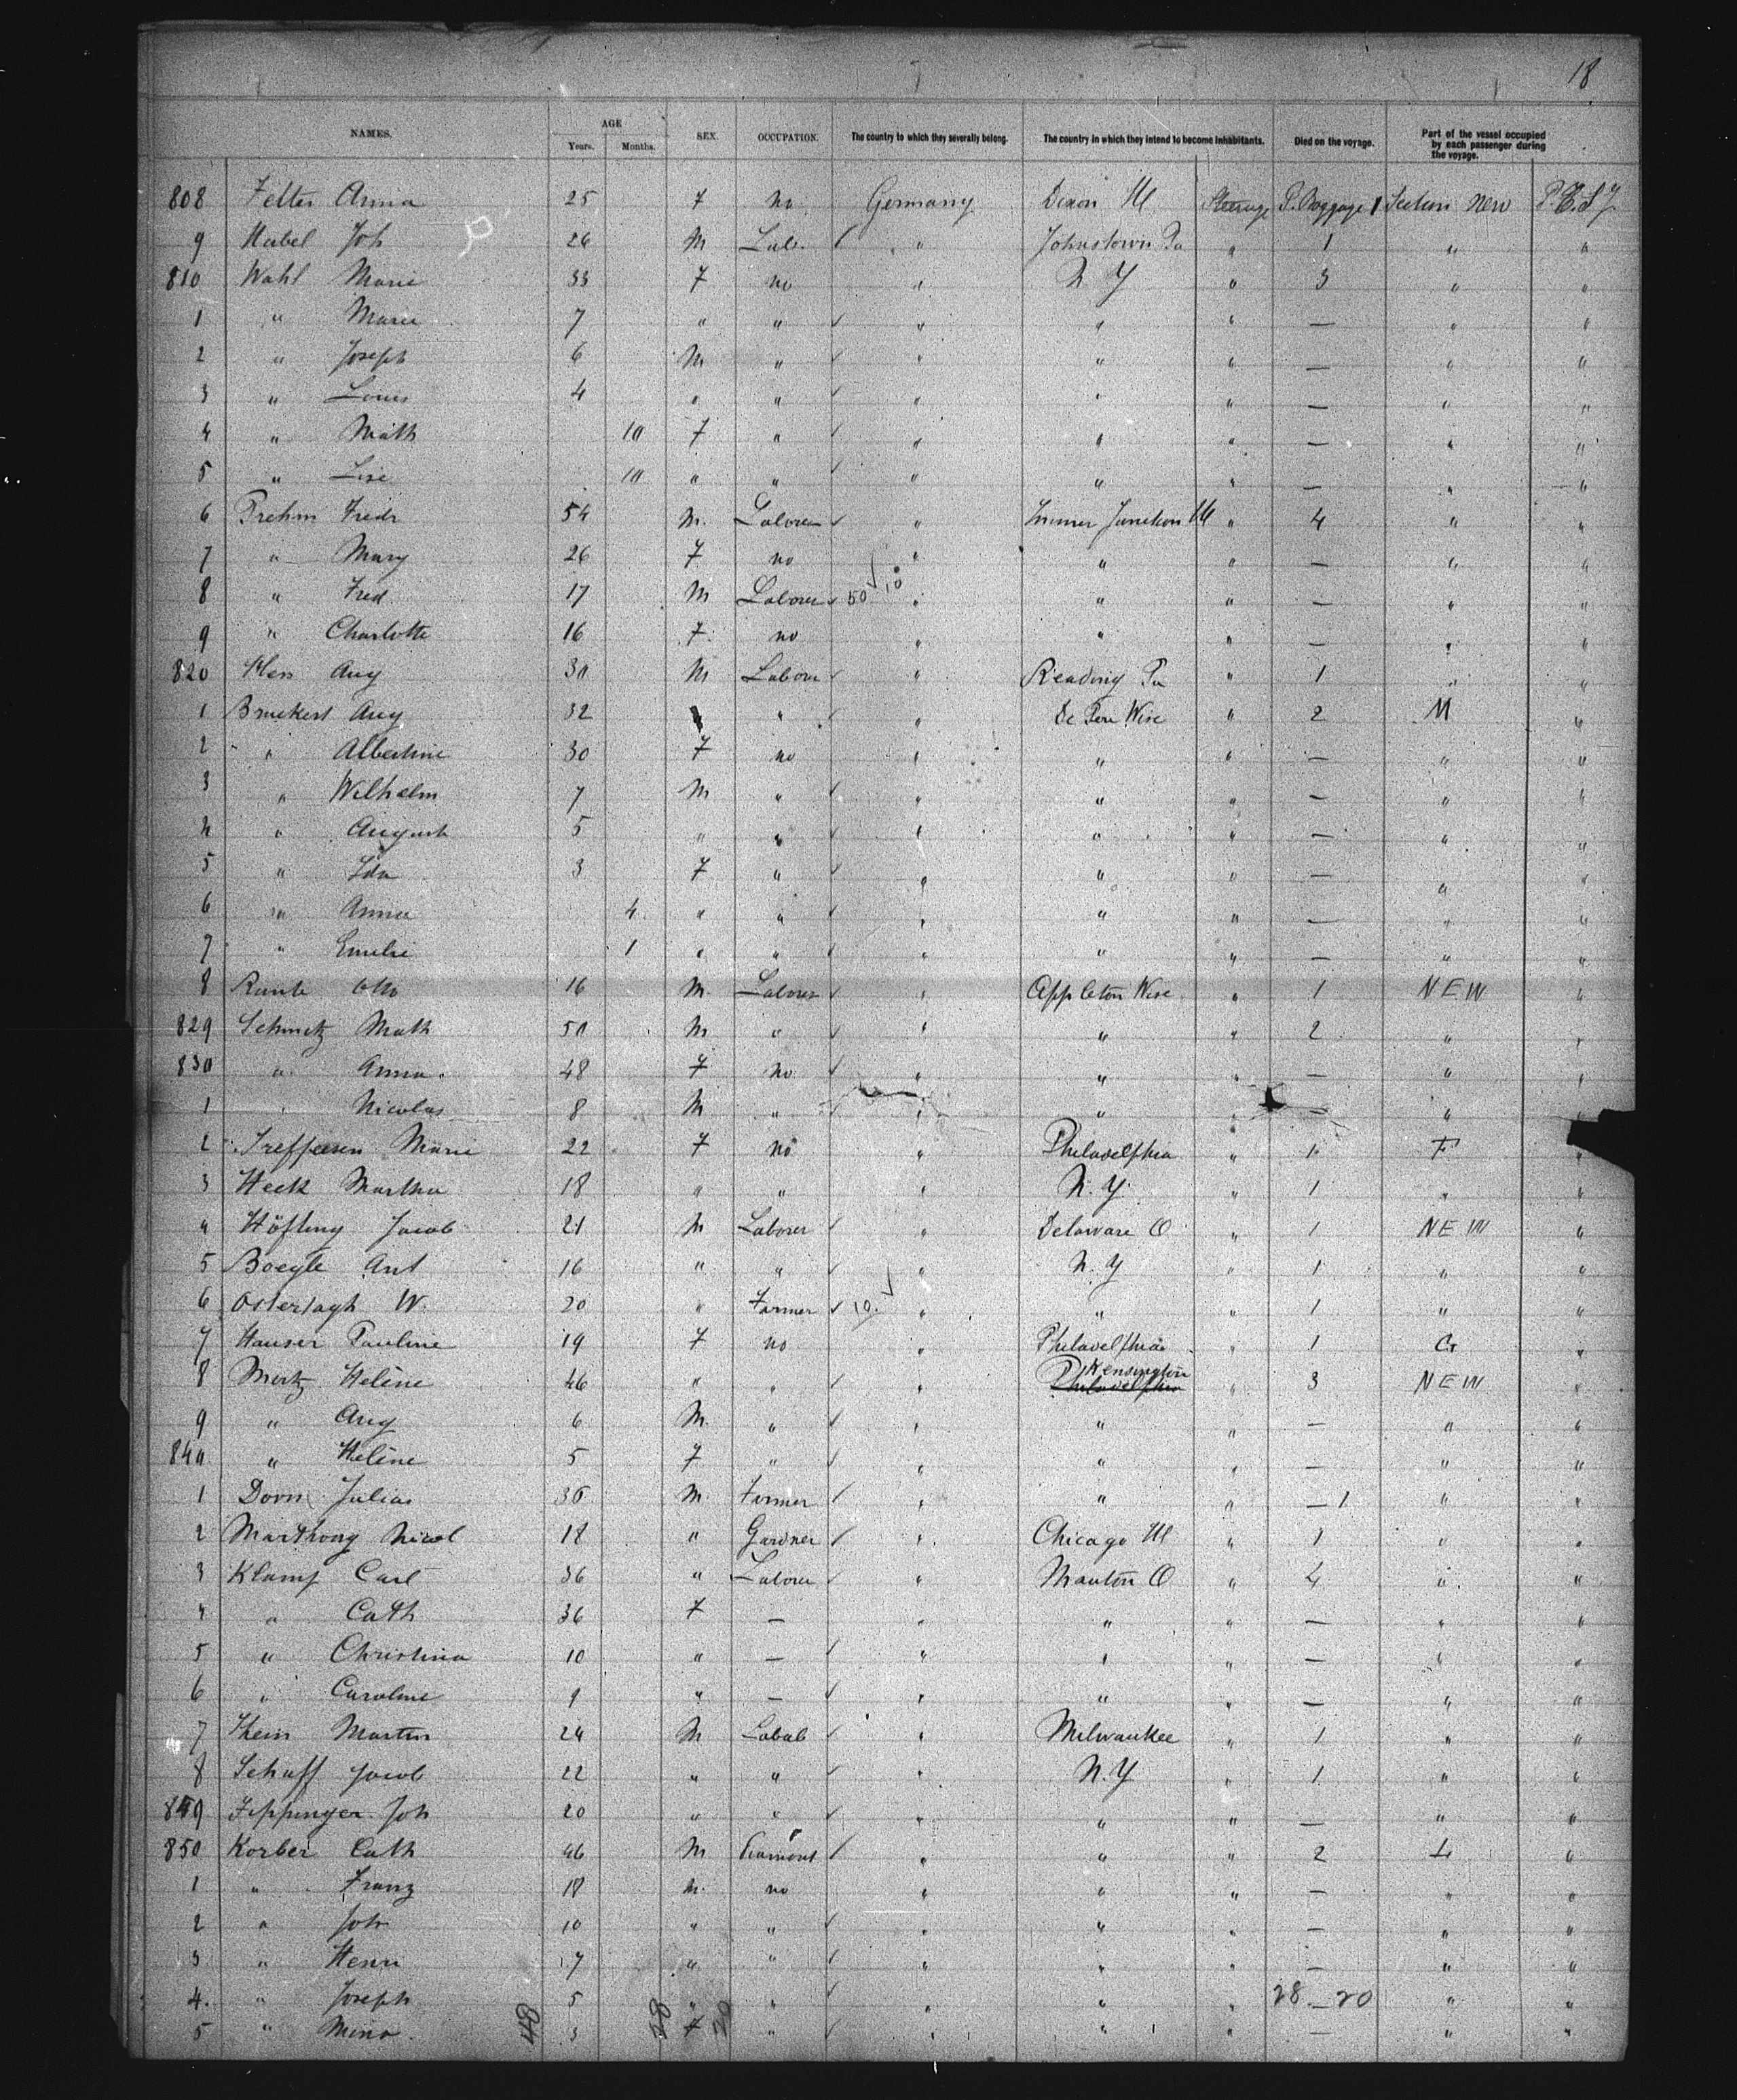 18
NAMES. AGE SEX. OCCUPATION. The country to which they severally belong. The country in which they intend to become inhabitants. Died on the voyage. Part of the vessel occupied by each passenger during the voyage.
Years. Months.
808 Felter Anna 25 F no Germany Dixon Ill Steerage P. Baggage 1 Section NEW
9 Nabel Joh 26 M Lab. " Johnstown Pa " 1 " "
810 Wahl Marie 33 F no " N Y " 3 " "
1 " Marie 7 " " " " " — " "
2 " Joseph 6 M " " " " — " "
3 " Louis 4 " " " " " — " "
4 " Math 10 F " " " " — " "
5 " Lise 10 " " " " " — " "
6 Prehm Fredr 54 M. Laborer " Junction Ill " 4 " "
7 " Mary 26 F no " " " — " "
8 " Fred 17 M Laborer 50 10 " " " — " "
9 " Charlotte 16 F. no " " " — " "
820 Hess Aug 30 M Labour " Reading Pa " 1 " "
1 Bruckert Aug 32 " " De Pere Wisc " 2 M "
2 " Albertine 30 F no " " " — " "
3 " Wilhelm 7 M " " " " — " "
4 " August 5 " " " " " — " "
5 " Ida 3 F " " " " — " "
6 " Anna 4 " " " " " — " "
7 " Emilie 1 " " " " " — " "
8 Runk Otto 16 M. Laborer " Appleton Wisc " 1 NEW "
829 Schmitz Math 50 M " " " " 2 " "
830 " Anna. 48 F no " " " — " "
1 " Nicolas 8 M " " " " — " "
2 Marie 22 F no " Philadelphia " 1 F "
3 Heck Martha 18 " " " N. Y. " 1 " "
4 Höfling Jacob 21 M Laborer " Delaware O " 1 NEW "
5 Boegle Ant 16 " " " N. Y " 1 " "
6 Ostertagh W. 20 " Farmer 10. " " " 1 " "
7 Hauser Pauline 19 F no " Philadelphia " 1 G "
8 Mertz Helène 46 " " " Philadelphia Kensington " 3 NEW "
9 " Aug 6 M. " " " " — " "
840 " Helène 5 F " " " " — " "
1 Dorn Julias 36 M. Farmer " " " — 1 " "
2 Marthony Nicol 18 " Gardner " Chicago Ill " 1 " "
3 Klamp Carl 36 " Laborer " Manton O " 4 " "
4 " Cath 36 F — " " " — " "
5 " Christina 10 " — " " " — " "
6 " Caroline 9 " — " " " — " "
7 Thein Martin 24 M " Milwaukee " 1 " "
8 Schaff Jacob 22 " " " N. Y " 1 " "
849 Zippinger Joh 20 " " " " " — " "
850 Korber Cath 46 M " " " 2 L "
1 " Franz 18 M. no " " " — " "
2 " Joh 10 " " " " " — " "
3 " Henri 7 " " " " " — " "
4. " Joseph 5 " " " " " 28 — 20 " "
5 " Mina. 3 F " " " " — " "